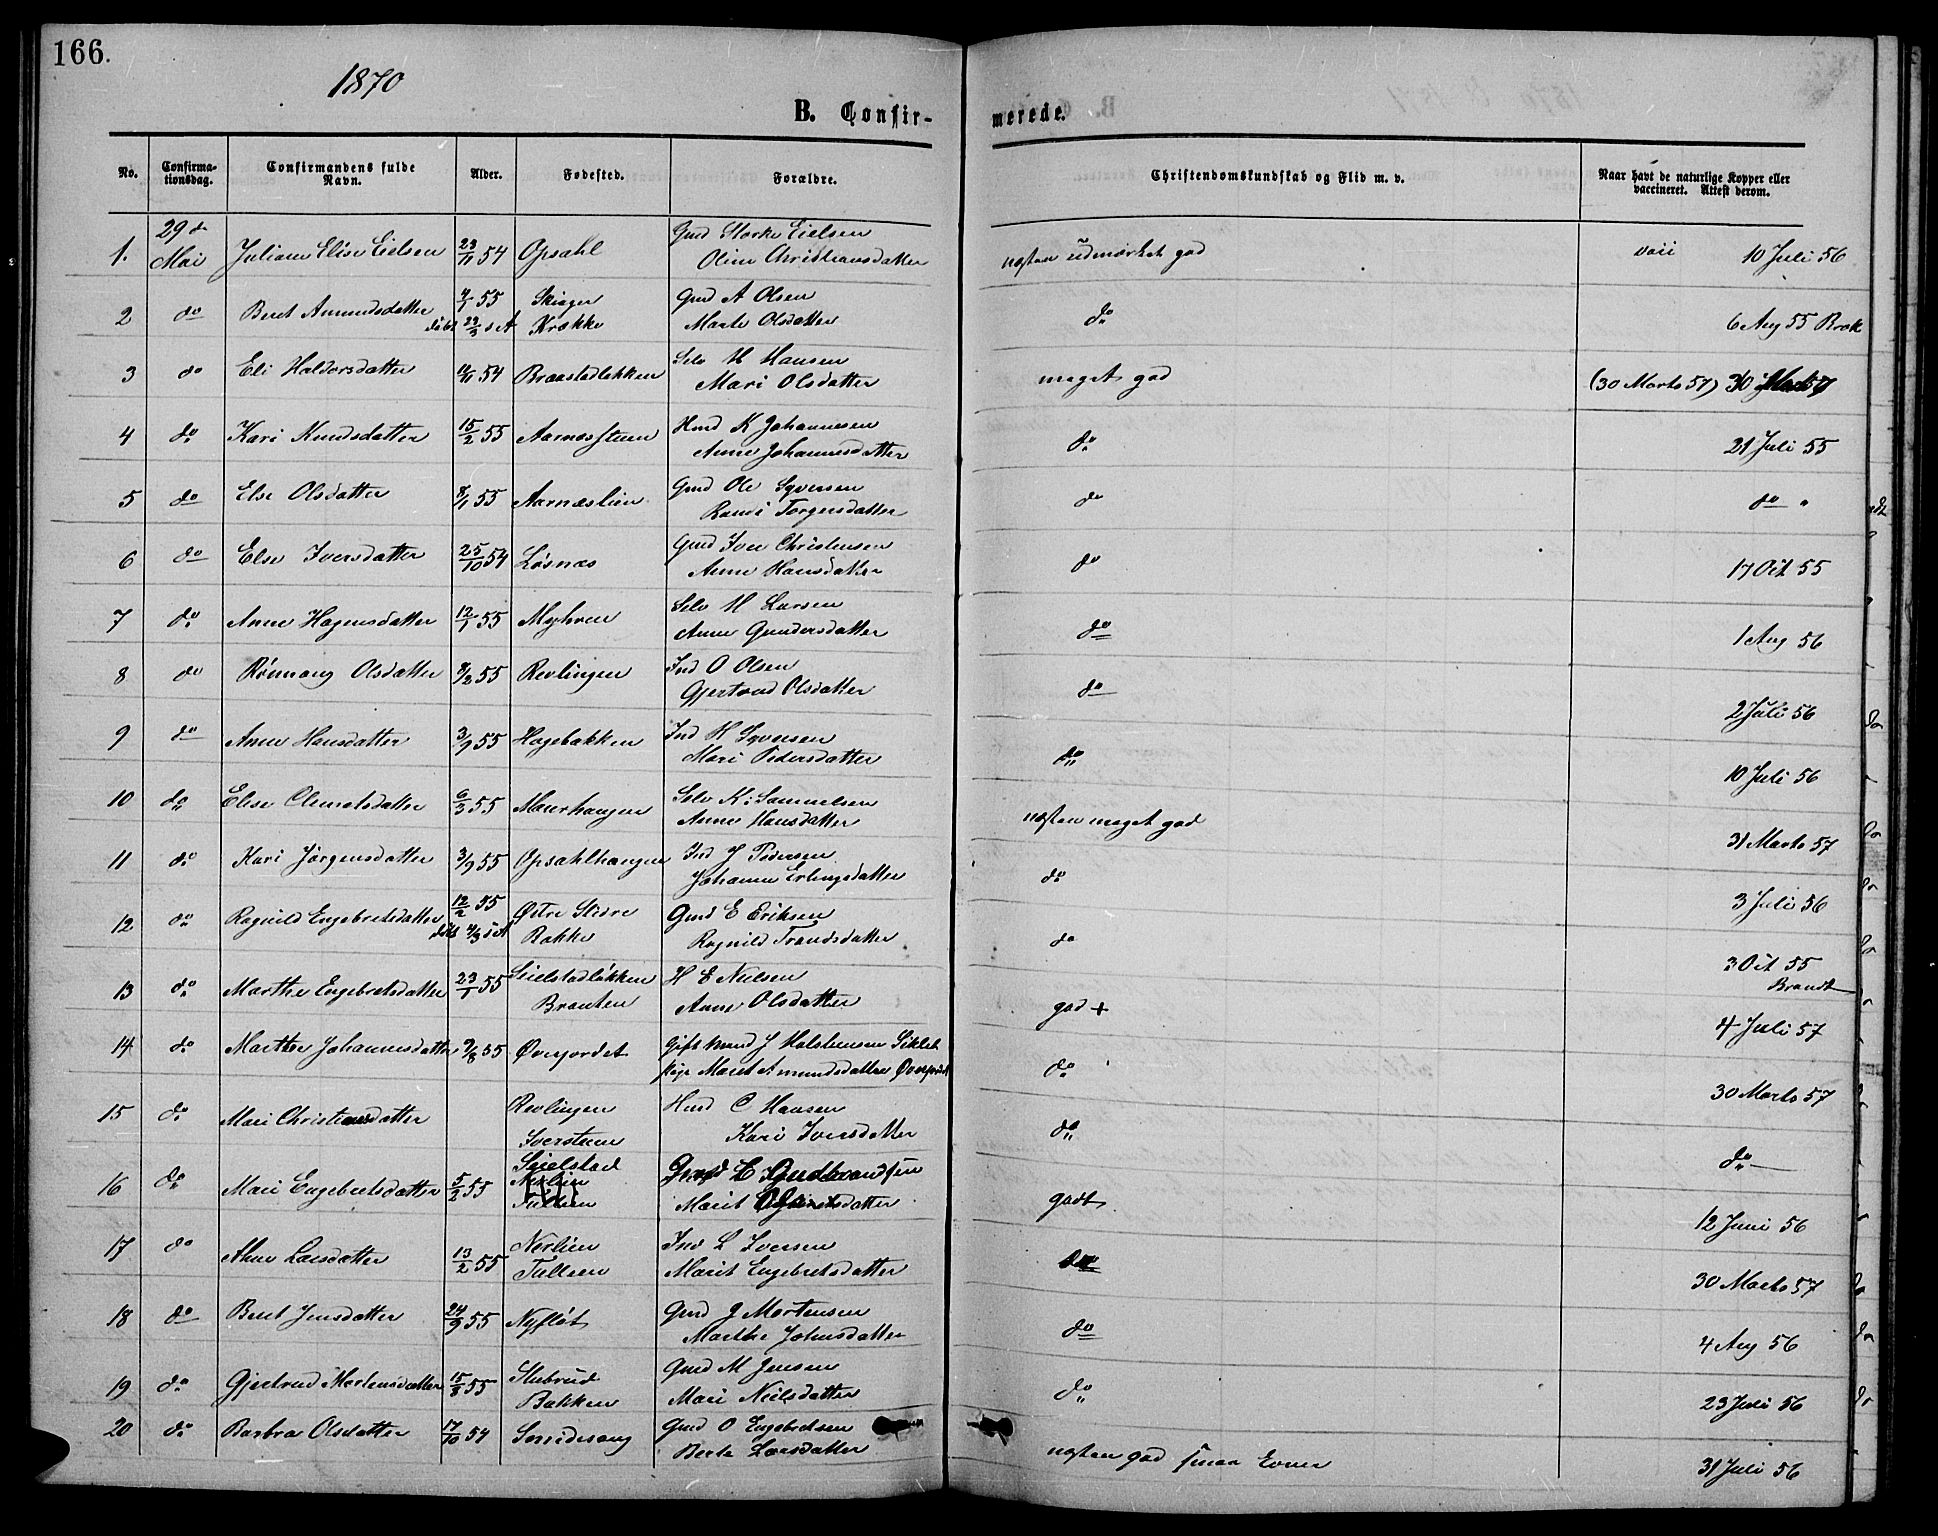 166.
1870
B. Confirmerede.
No. Confirmationsdag. Confirmandens fulde Navn. Alder. Fødested. Forældre. Christendomskundskab og Flid m. v. Naar havt de naturlige Kopper eller vaccineret. Attest derom.
1. 29 d Mai Juliane Elise Eielsen 23/11 54 Opsahl Gmd Storke Eielsen Oline Christiansdatter næsten udmærket god vaci 10 Juli 56
2 do Beret Amundsdatter 4/1 55 Skiager Krække Gmd A Olsen Marte Olsdatter do 6 Aug 55
3 do Eli Haldorsdatter 54 Braastadløkken Selv H Hansen Mari Olsdatter meget god (30 Marts 57)
4 do Kari Knudsdatter 15/2 55 Aarnæssteen Hmd K Johannesen Anne Johannesdatter do 21 Juli 55
5 do Else Olsdatter 8/1 55 Aarnæslien Gmd Ole Syversen Randi Torgersdatter do do "
6 do Else Iversdatter 25/10 54 Løsnæs Gmd Iver Christensen Anne Hansdatter do 17 Oct 55
7 do Anne Hagensdatter 12/1 55 Myhren Selv H Larsen Anne Gundersdatter do 1 Aug 56
8 do Rønnaug Olsdatter 8/2 55 Revlingen Ind O Olsen Gjertrud Olsdatter do 2 Juli 56
9 do Anne Hansdatter 3/9 55 Hagebakken Ind H Syversen Mari Pedersdatter do 10 Juli 56
10 do Elise Clemetsdatter 6/3 55 Maurhaugen Selv K: Samuelsen Anne Hansdatter næsten meget god 31 Marts 57
11 do Kari Jørgensdatter 3/9 55 Opsahlhaugen Ind J Pedersen Johanne Erlingsdatter do 3 Juli 56
12 do Ragnild Engebretsdatter 12/2 55 Østre Slidre Bakke Gmd E Eriksen Ragnild Trondsdatter do 3 Oct 55 Brandt
13 do Marthe Engebretsdatter 23/1 55 Seielstadløkken Braaten H E Nielsen Anne Olsdatter god + 4 Juli 57
14 do Marthe Johannesdatter 9/8 55 Øvrejordet Gift Mand J Halstensen Siklet pige Marit Amundsdatter Øvrejordet do 30 Marts 57
15 do Mari Christiansdatter Revlingen Sversteen Hmd C Hansen Kari Iversdatter do do
16 do Mari Engebretsdatter 5/2 55 Seielstad Gmd E Gudbrandsen Marit godt 12 Juni 56
17 do Anne Larsdatter 13/2 55 Nerlien Tullien Ind L Iversen Marit Engebretsdatter do 30 Marts 57
18 do Beret Jensdatter 24/9 55 Nyfløt Gmd J Mortensen Marthe Johnsdatter do 4 Aug 56
19 do Gjertrud Mortensdatter 15/8 55 Stubrud Bakken Gmd M Jensen Mari Nielsdatter do 23 Juli 56
20 do Barbra Olsdatter 17/10 54 Smidesang Gmd O Engebretsen Berte Larsdatter næsten god smaa Evner 31 Juli 56